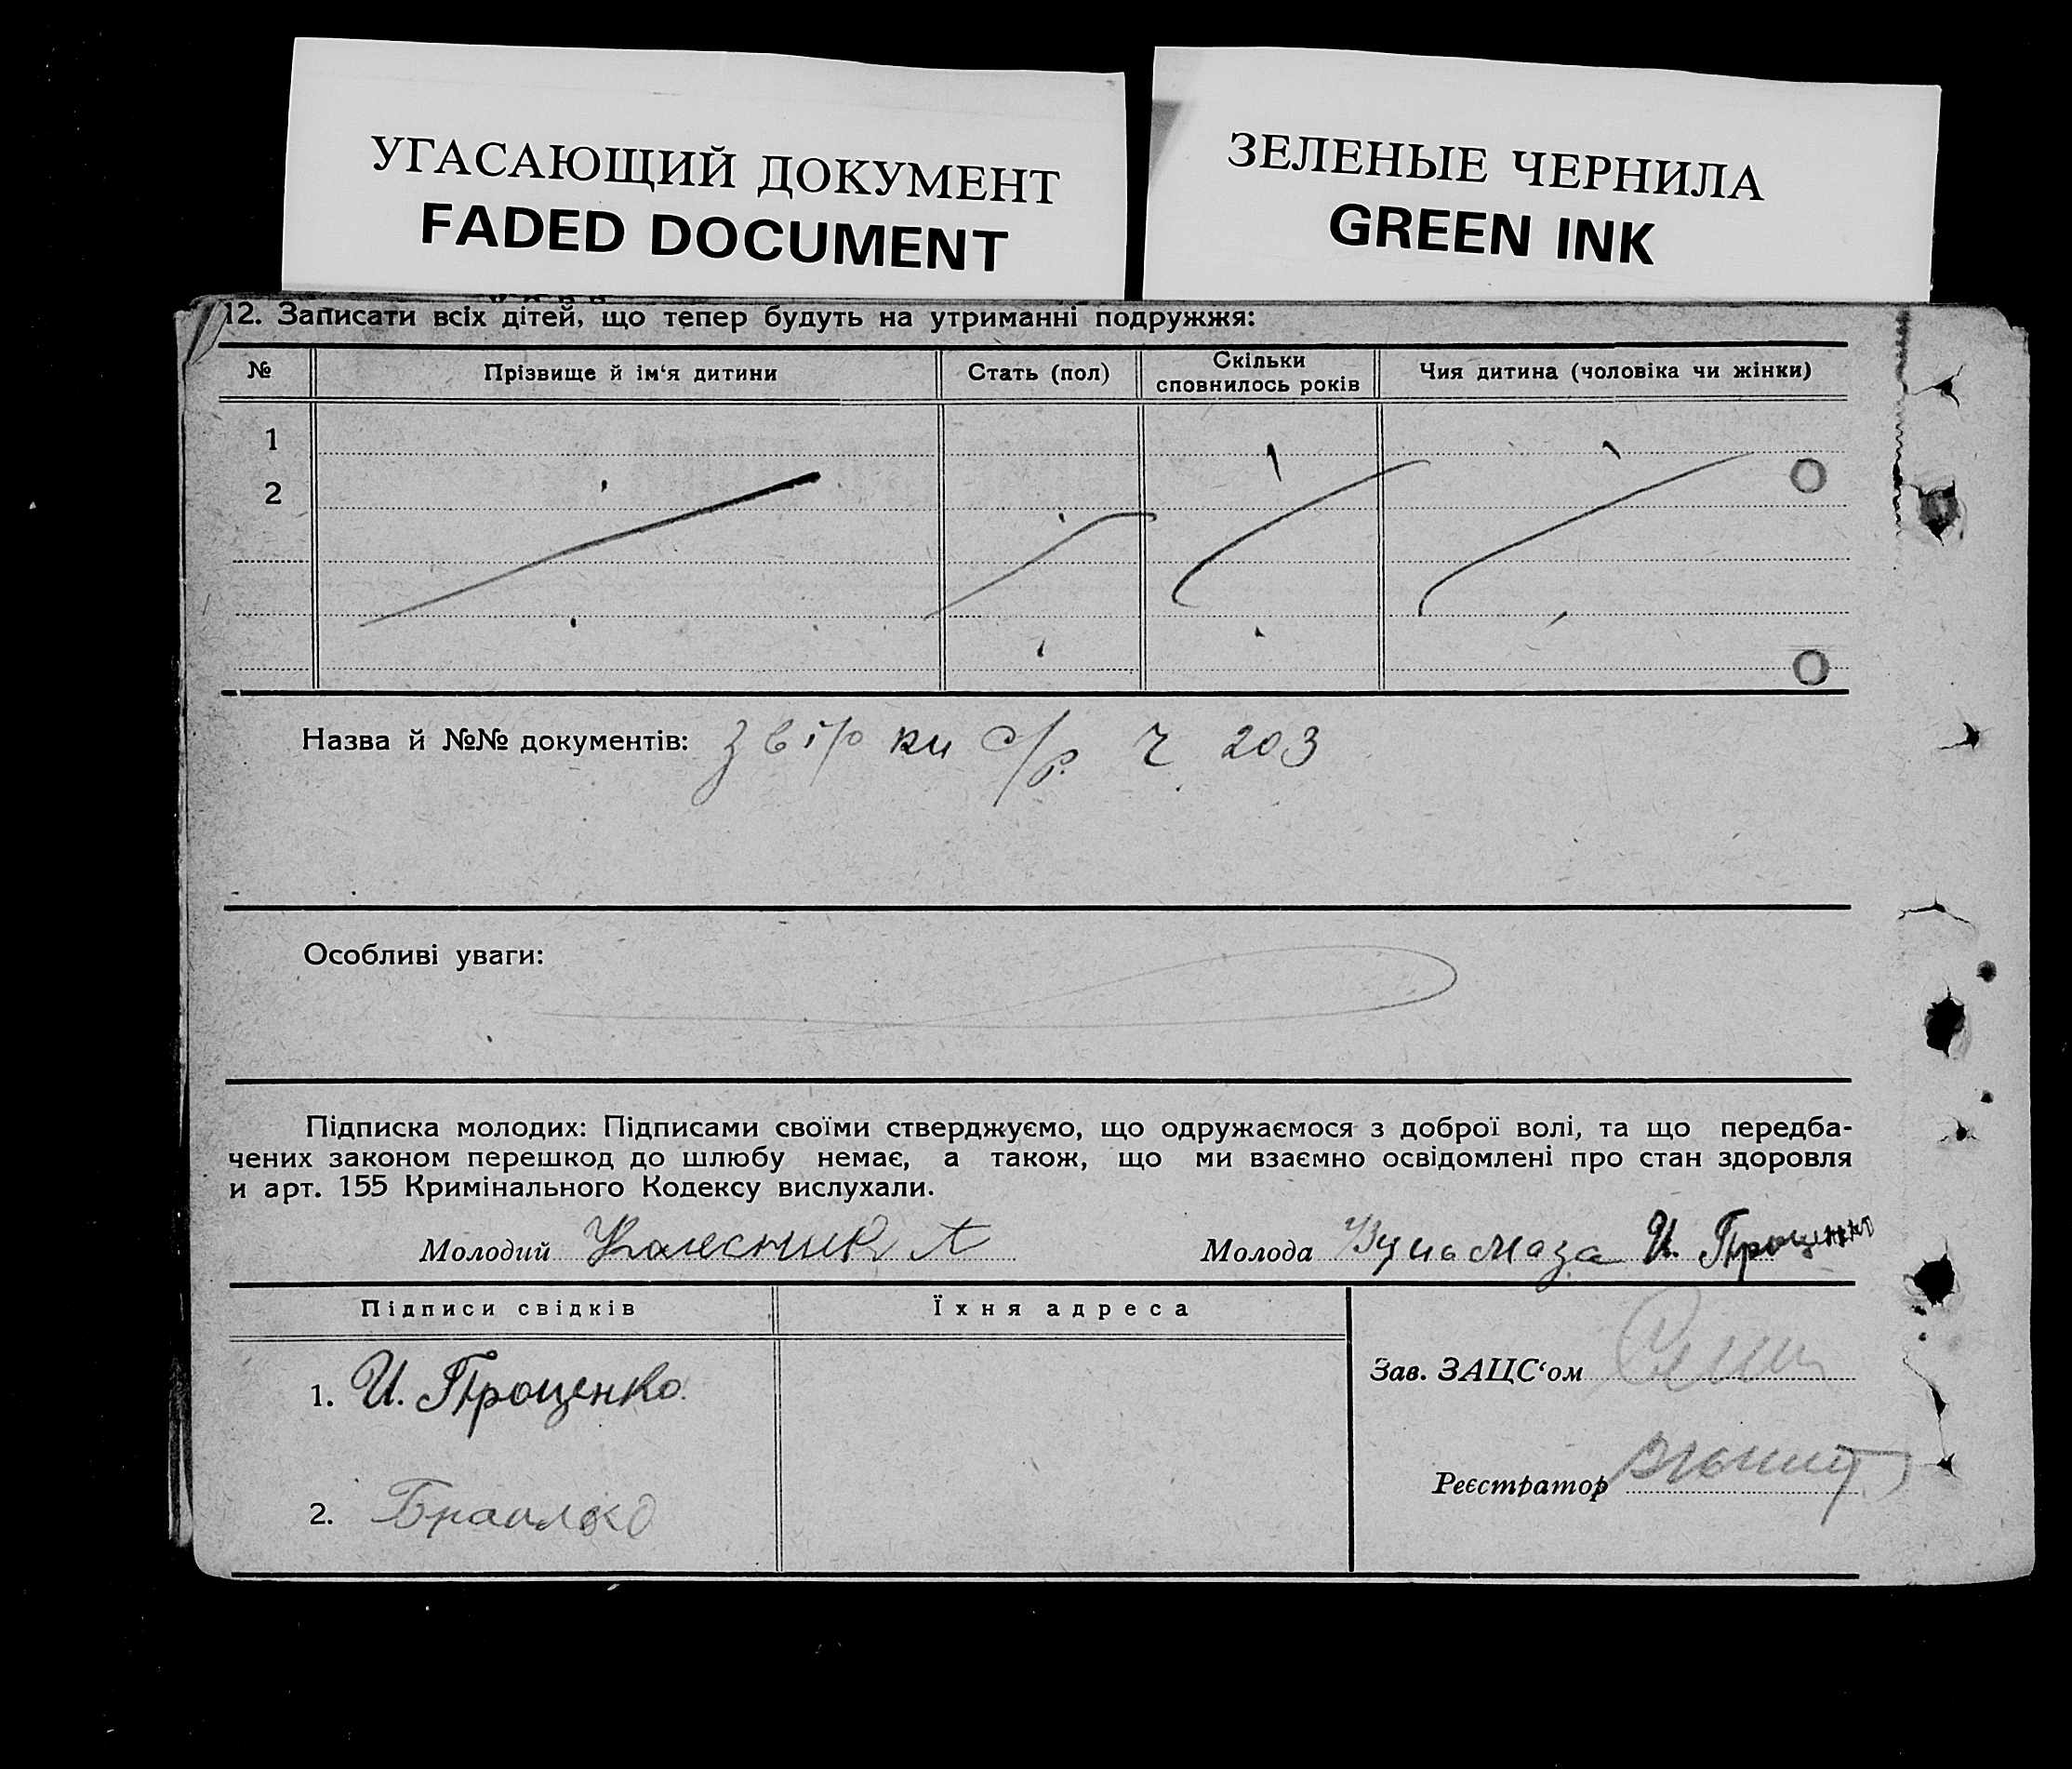 УГАСАЮЩИЙ ДОКУМЕНТ
FADED DOCUMENT
ЗЕЛЕНЫЕ ЧЕРНИЛА
GREEN INK
12. Записати всіх дітей, що тепер будуть на утриманні подружжя:
№ Прізвище й ім‘я дитини Стать (пол) Скільки сповнилось років Чия дитина (чоловіка чи жінки)
1
2
Назва й №№ документів: звірки с/р. Ч 203
Особливі уваги:
Підписка молодих: Підписами своїми стверджуємо, що одружаємося з доброї волі, та що передба-
чених законом перешкод до шлюбу немає, а також, що ми взаємно освідомлені про стан здоровля
и арт. 155 Кримінального Кодексу вислухали.
Молодий Колесник А Молода И. Проценко
Підписи свідків Їхня адреса
Зав. ЗАЦС‘ом
1. И. Проценко.
Реєстратор
2.